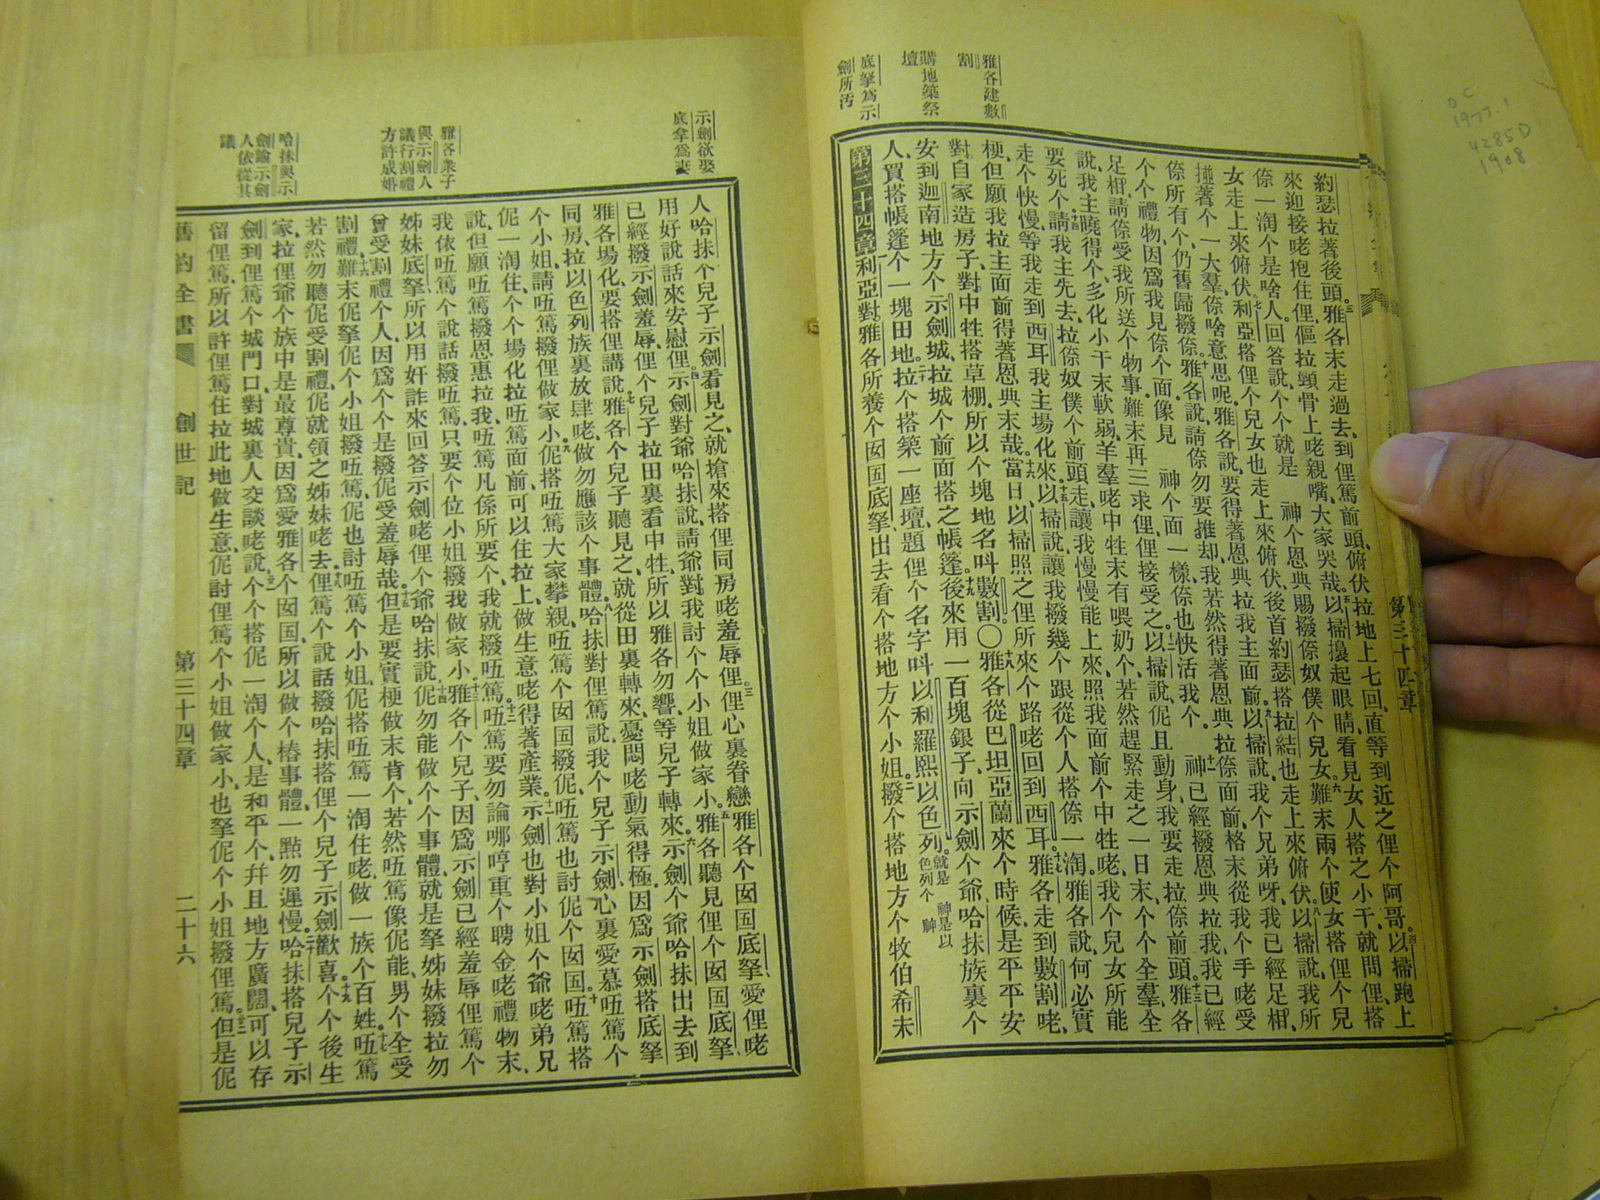 雅各建數割
購地築祭壇
底拏爲示劍所汚
約瑟拉著後頭雅各末走過去到俚篤前頭俯伏拉地上七回直等到近之俚个阿哥以掃跑上
來迎接咾抱住俚傴拉頸骨上咾親嘴大家哭哉以掃擡起眼睛看見女人搭之小干就問俚搭
倷一淘个是啥人回答說个个就是 神个恩典賜撥倷奴僕个兒女難末兩个使女搭俚个兒
女走上來俯伏利亞搭俚个兒女也走上來俯伏後首約瑟搭拉結也走上來俯伏以掃說我所
撞著个一大羣倷啥意思呢雅各說要得著恩典拉我主面前以掃說我个兄弟呀我已經足相
倷所有个仍舊歸撥倷雅各說請倷勿要推却我若然得著恩典拉倷面前格末從我个手咾受
个个禮物因爲我見倷个面像見 神个面一樣倷也快活我个 神已經撥恩典拉我我已經
足相請倷受我所送个物事難末再三求俚俚接受之以掃說伲且動身我要走拉倷前頭雅各
說我主曉得个多化小干末軟弱羊羣咾中牲末有喂奶个若然趕緊走之一日末个个全羣全
要死个請我主先去拉倷奴僕个前頭走讓我慢慢能上來照我面前个中牲咾我个兒女所能
走个快慢等我走到西耳我主場化來以掃說讓我撥幾个跟從个人搭倷一淘雅各說何必實
梗但願我拉主面前得著恩典末哉當日以掃照之俚所來个路咾回到西耳雅各走到數割咾
對自家造房子對中牲搭草棚所以个塊地名呌數割〇雅各從巴坦亞蘭來个時候是平平安
安到迦南地方个示劍城拉城个前面搭之帳篷後來用一百塊銀子向示劍个爺哈抹族裏个
人買搭帳篷个一塊田地拉个搭築一座壇題俚个名字呌以利羅熙以色列就是 神是以色列个 神
第三十四章利亞對雅各所養个囡囯底拏出去看个搭地方个小姐撥个搭地方个牧伯希未
第三十四章
示劍欲娶底拿爲妻
雅各衆子與示劍人議行割禮方許成婚
哈抹與示劍諭示劍人依從其議
人哈抹个兒子示劍看見之就搶來搭俚同房咾羞辱俚俚心裏眷戀雅各个囡囯底拏愛俚咾
用好說話來安慰俚示劍對爺哈抹說請爺對我討个个小姐做家小雅各聽見俚个囡囯底拏
已經撥示劍羞辱俚个兒子拉田裏看中牲所以雅各勿響等兒子轉來示劍个爺哈抹出去到
雅各場化要搭俚講說雅各个兒子聽見之就從田裏轉來憂悶咾動氣得極因爲示劍搭底拏
同房拉以色列族裏放肆咾做勿應該个事體哈抹對俚篤說我个兒子示劍心裏愛慕吾篤个
个小姐請吾篤撥俚做家小伲搭吾篤大家攀親吾篤个囡囯撥伲吾篤也討伲个囡囯吾篤搭
伲一淘住个个場化拉吾篤面前可以住拉上做生意咾得著產業示劍也對小姐个爺咾弟兄
說但願吾篤撥恩惠拉我吾篤凡係所要个我就撥吾篤吾篤要勿論哪哼重个聘金咾禮物末
我依吾篤个說話撥吾篤只要个位小姐撥我做家小雅各个兒子因爲示劍已經羞辱俚篤个
姊妹底拏所以用奸詐來回答示劍咾俚个爺哈抹說伲勿能做个个事體就是拏姊妹撥拉勿
曾受割禮个人因爲个个是撥伲受羞辱哉但是要實梗做末肯个若然吾篤像伲能男个全受
割禮難末伲拏伲个小姐撥吾篤伲也討吾篤个小姐伲搭吾篤一淘住咾做一族个百姓吾篤
若然勿聽伲受割禮伲就領之姊妹咾去俚篤个說話撥哈抹搭俚个兒子示劍歡喜个个後生
家拉俚爺个族中是最尊貴因爲愛雅各个囡囯所以做个樁事體一點勿遲慢哈抹搭兒子示
劍到俚篤个城門口對城裏人交談咾說个个搭伲一淘个人是和平个幷且地方廣闊可以存
留俚篤所以許俚篤住拉此地做生意伲討俚篤个小姐做家小也拏伲个小姐撥俚篤但是伲
舊約全書 創世記 第三十四章 二十六
OC
1977.1
4285D
1908